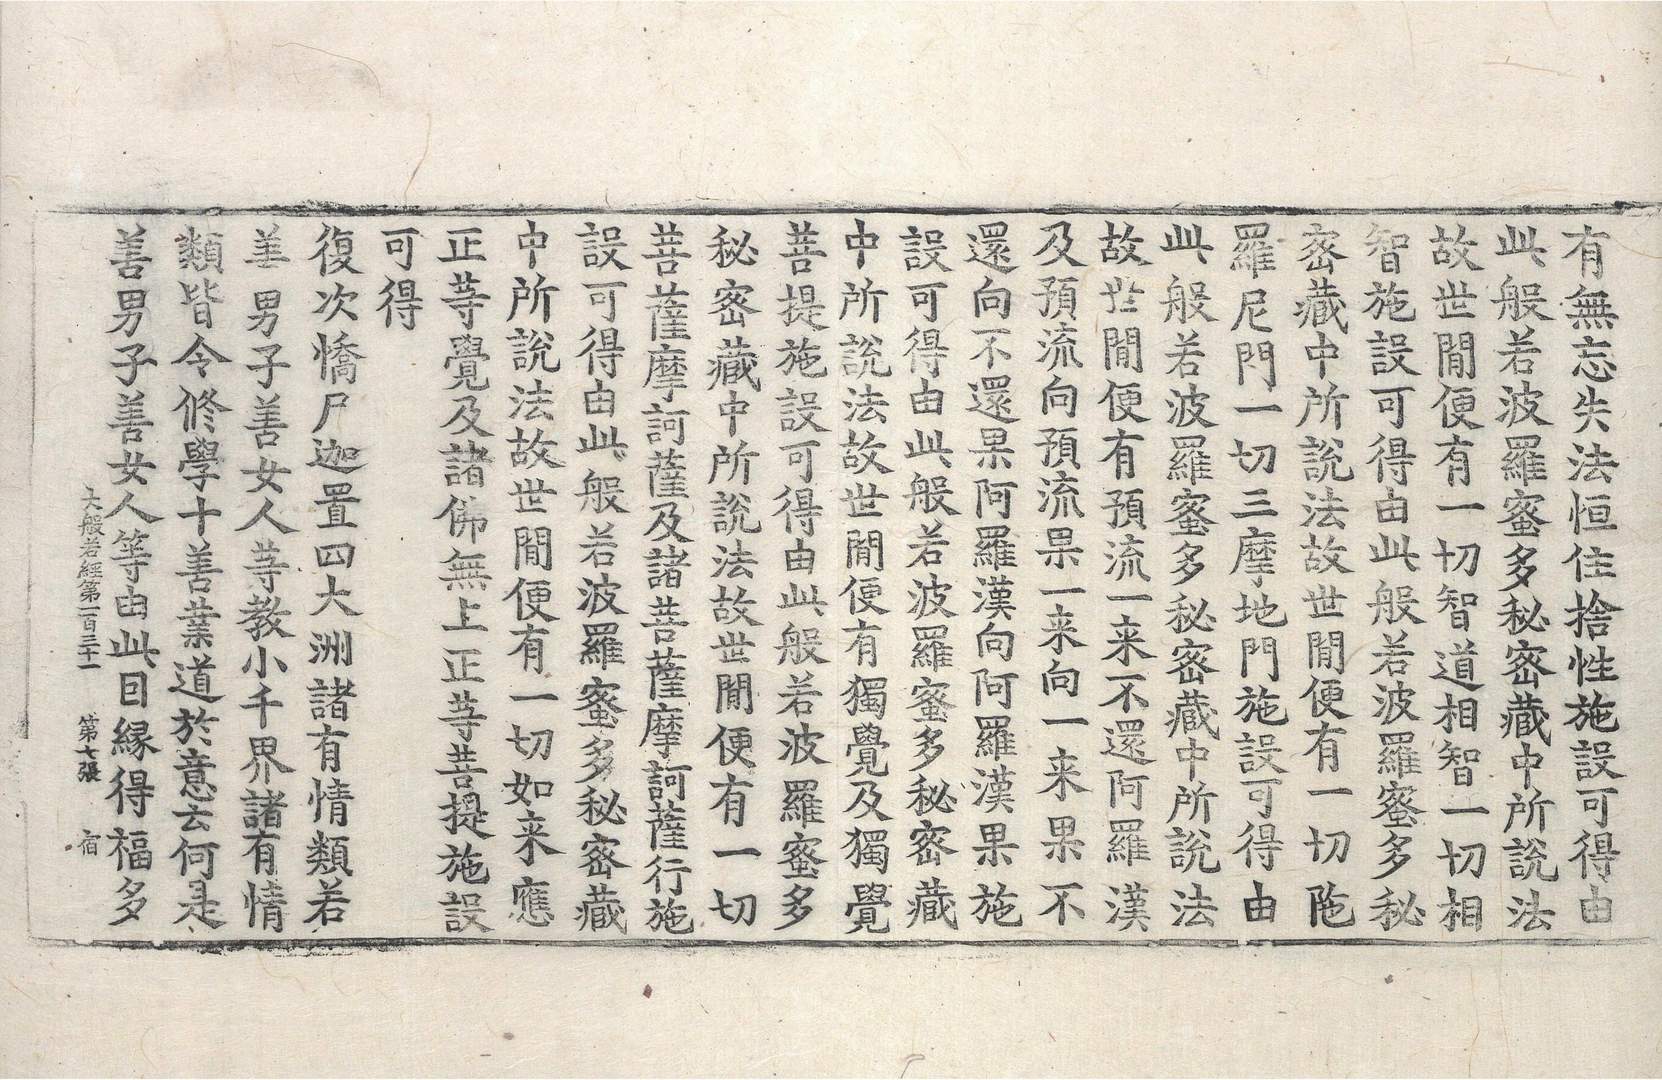 有無忘失法恒住捨性施設可得由
此般若波羅蜜多秘密藏中所說法
故世間便有一切智道相智一切相
智施設可得由此般若波羅蜜多秘
密藏中所說法故世間便有一切陁
羅尼門一切三摩地門施設可得由
此般若波羅蜜多秘密藏中所說法
故世間便有預流一来不還阿羅漢
及預流向預流果一来向一来果不
還向不還果阿羅漢向阿羅漢果施
設可得由此般若波羅蜜多秘密藏
中所說法故世間便有獨覺及獨覺
菩提施設可得由此般若波羅蜜多
秘密藏中所說法故世間便有一切
菩薩摩訶薩及諸菩薩摩訶薩行施
設可得由此般若波羅蜜多秘密藏
中所說法故世間便有一切如来應
正等覺及諸佛無上正等菩提施設
可得
復次憍尸迦置四大洲諸有情類若
善男子善女人等教小千界諸有情
類皆令修學十善業道於意云何是
善男子善女人等由此因緣得福多
大般若經第一百三十一 第七張 宿